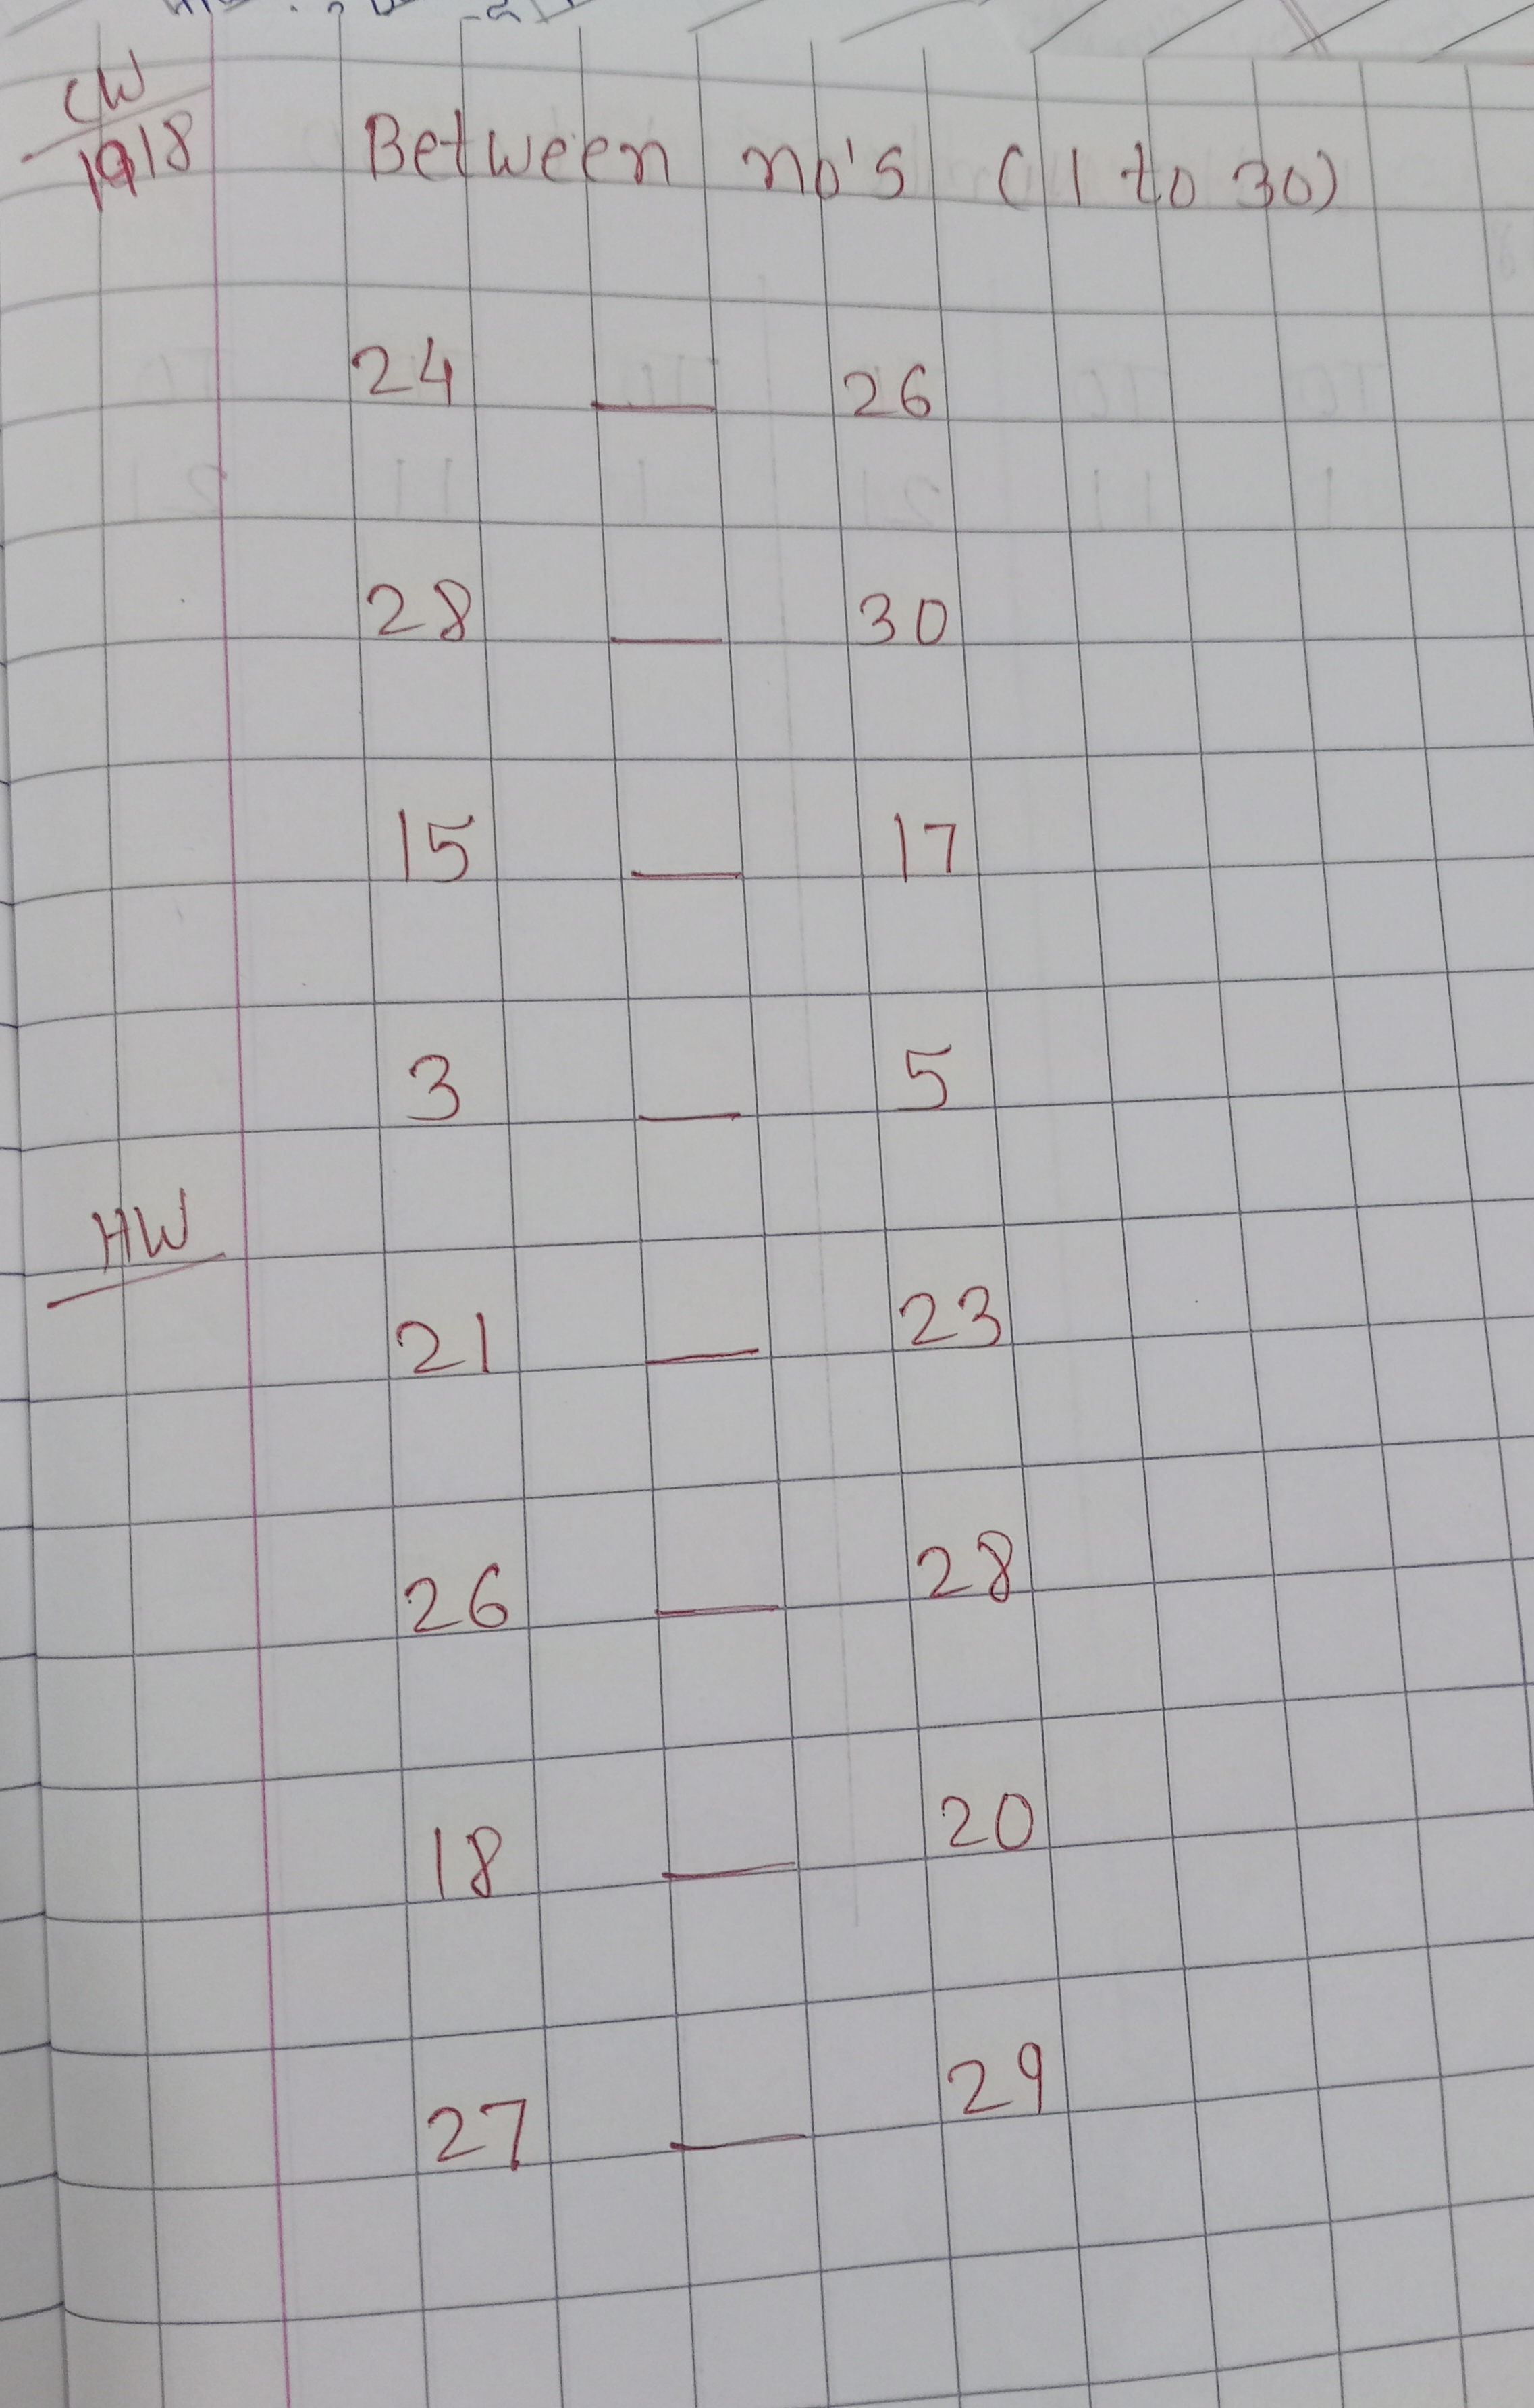 CW
19/8 Between no's (1 to 30)
24 __ 26
28 __ 30
15 __ 17
3 __ 5
HW
21 __ 23
26 __ 28
18 __ 20
27 __ 29